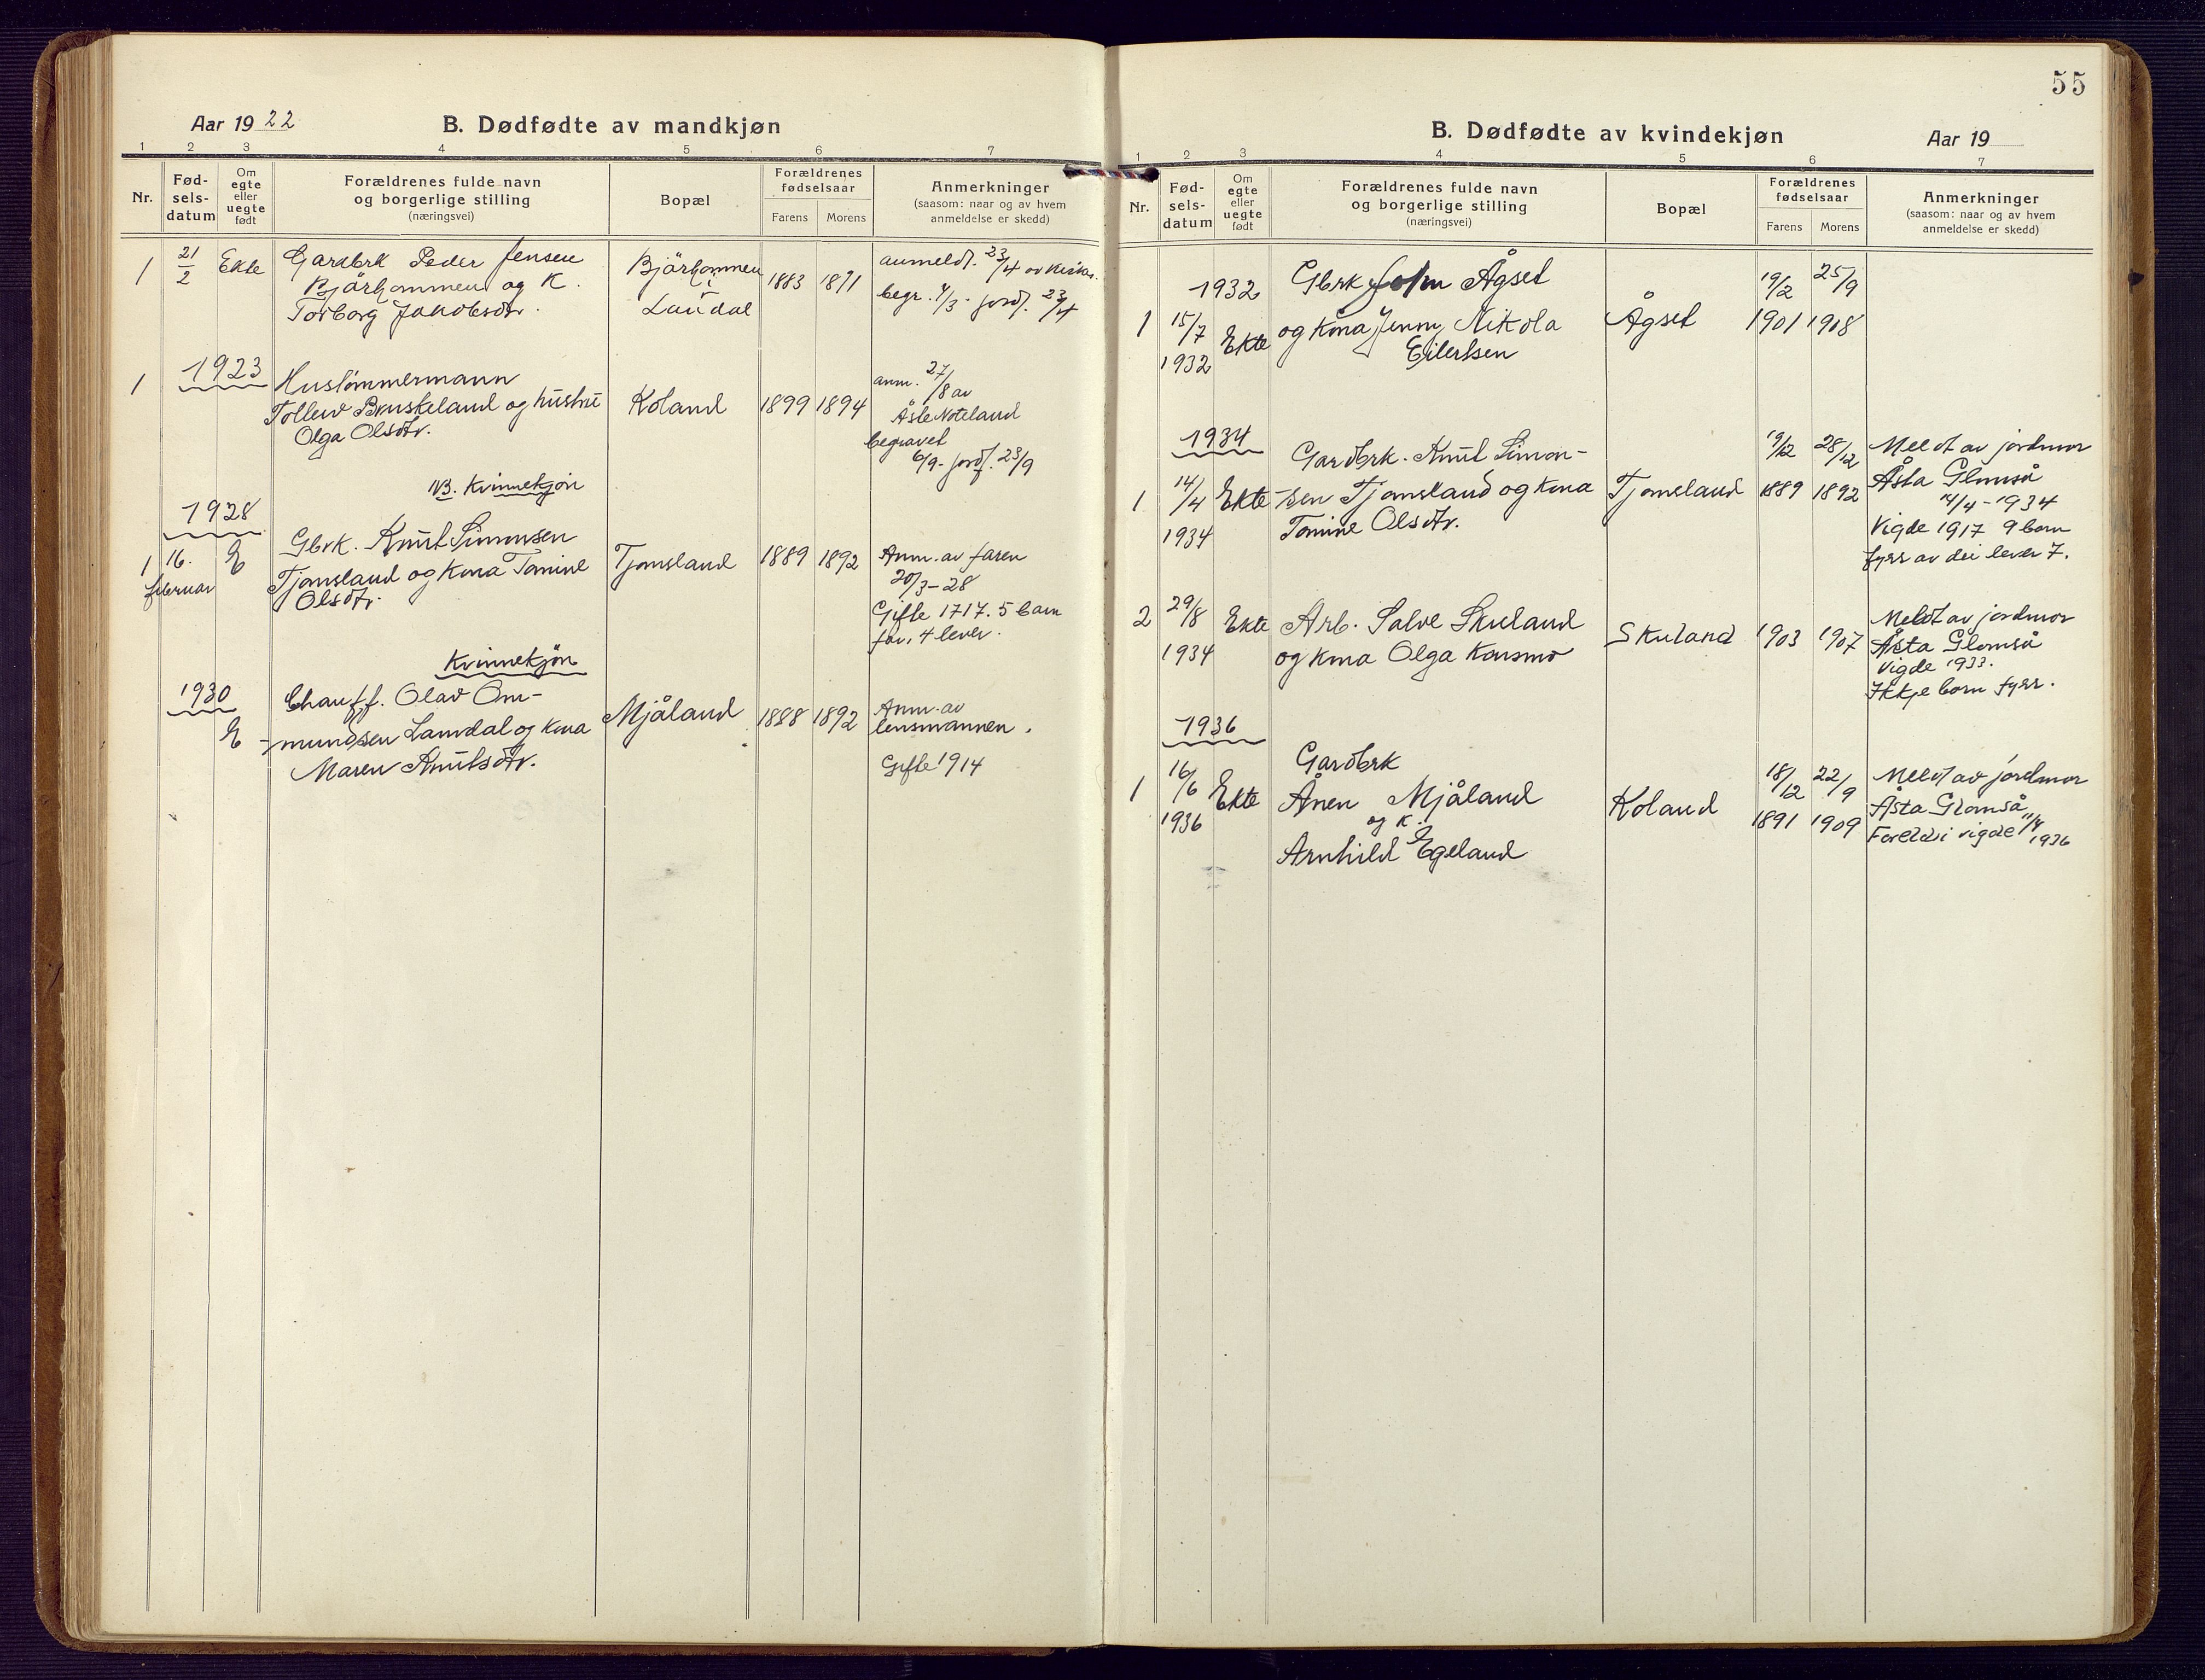 Aar 1922
B. Dødfødte av mandkjøn
1 2 3 4 5 6 7
Nr.
Fød-
sels-
datum
Om
egte
eller
uegte
født
Forældrenes fulde navn
og borgerlige stilling
(næringsvei)
Bopæl
Forældrenes
fødselsaar
Farens Morens
Anmerkninger
(saasom: naar og av hvem
anmeldelse er skedd)
1 21/2 Ekte Gardbrk Peder Jensen
Bjårkommen og K.
Torborg Jakobsdtr.
Bjårkommen
Laudal
1883 1871
anmeldt. 23/4 av
begr. 4/3 - jordf. 23/4
1923
1 Hustømmermann
Tollew Bruskeland og hustru
Olga Olsdtr.
Koland
1899 1894
anm. 27/8 av
Åsle Noteland
begravet
6/9 - jordf. 23/9
NB. Kvinnekjøn
1928
1 16.
februar
E
Gbrk. Knut Simonsen
Tjomsland og kona Tomine
Olsdtr.
Tjomsland
1889 1892
Anm. av faren
20/3-28
Gifte 1717. 5 barn
før, 4 lever.
Kvinnekjøn
1930
E
Chauff. Olav Om-
mundsen Lamdal og kona
Maren Knutsdtr.
Mjåland
1888 1892
Anm. av
lensmannen.
Gifte 1914
55
B. Dødfødte av kvindekjøn
Aar 19
1 2 3 4 5 6 7
Nr.
Fød-
sels-
datum
Om
egte
eller
uegte
født
Forældrenes fulde navn
og borgerlige stilling
(næringsvei)
Bopæl
Forældrenes
fødselsaar
Farens Morens
Anmerkninger
(saasom: naar og av hvem
anmeldelse er skedd)
1932
1 15/7
1932
Ekte
Gbrk John Ågset
og kona Jenny Nikola
Eilertsen
Ågset
19/2 25/9
1901 1918
1934
1 14/4
1934
Ekte
Gardbrk. Knut Simon-
sen Tjomsland og kona
Tomine Olsdtr.
Tjomsland
19/12 28/12
1889 1892
Meldt av jordmor
Åsta Glomså
14/4-1934
Vigde 1917 9 born
fyrr av dei lever 7.
2 29/8
1934
Ekte
Arb. Salve Skuland
og kona Olga Konsmo
Skuland
1903 1907
Meldt av jordmor
Åsta Glomså
Vigde 1933.
Ikkje born fyrr.
1936
1 16/6
1936
Ekte
Gardbrk
Ånen Mjåland
og K.
Arnhild Egeland
Koland
18/12 22/9
1891 1909
Meldt av jordmor
Åsta Glomså
Foreldri vigde 11/4
1936